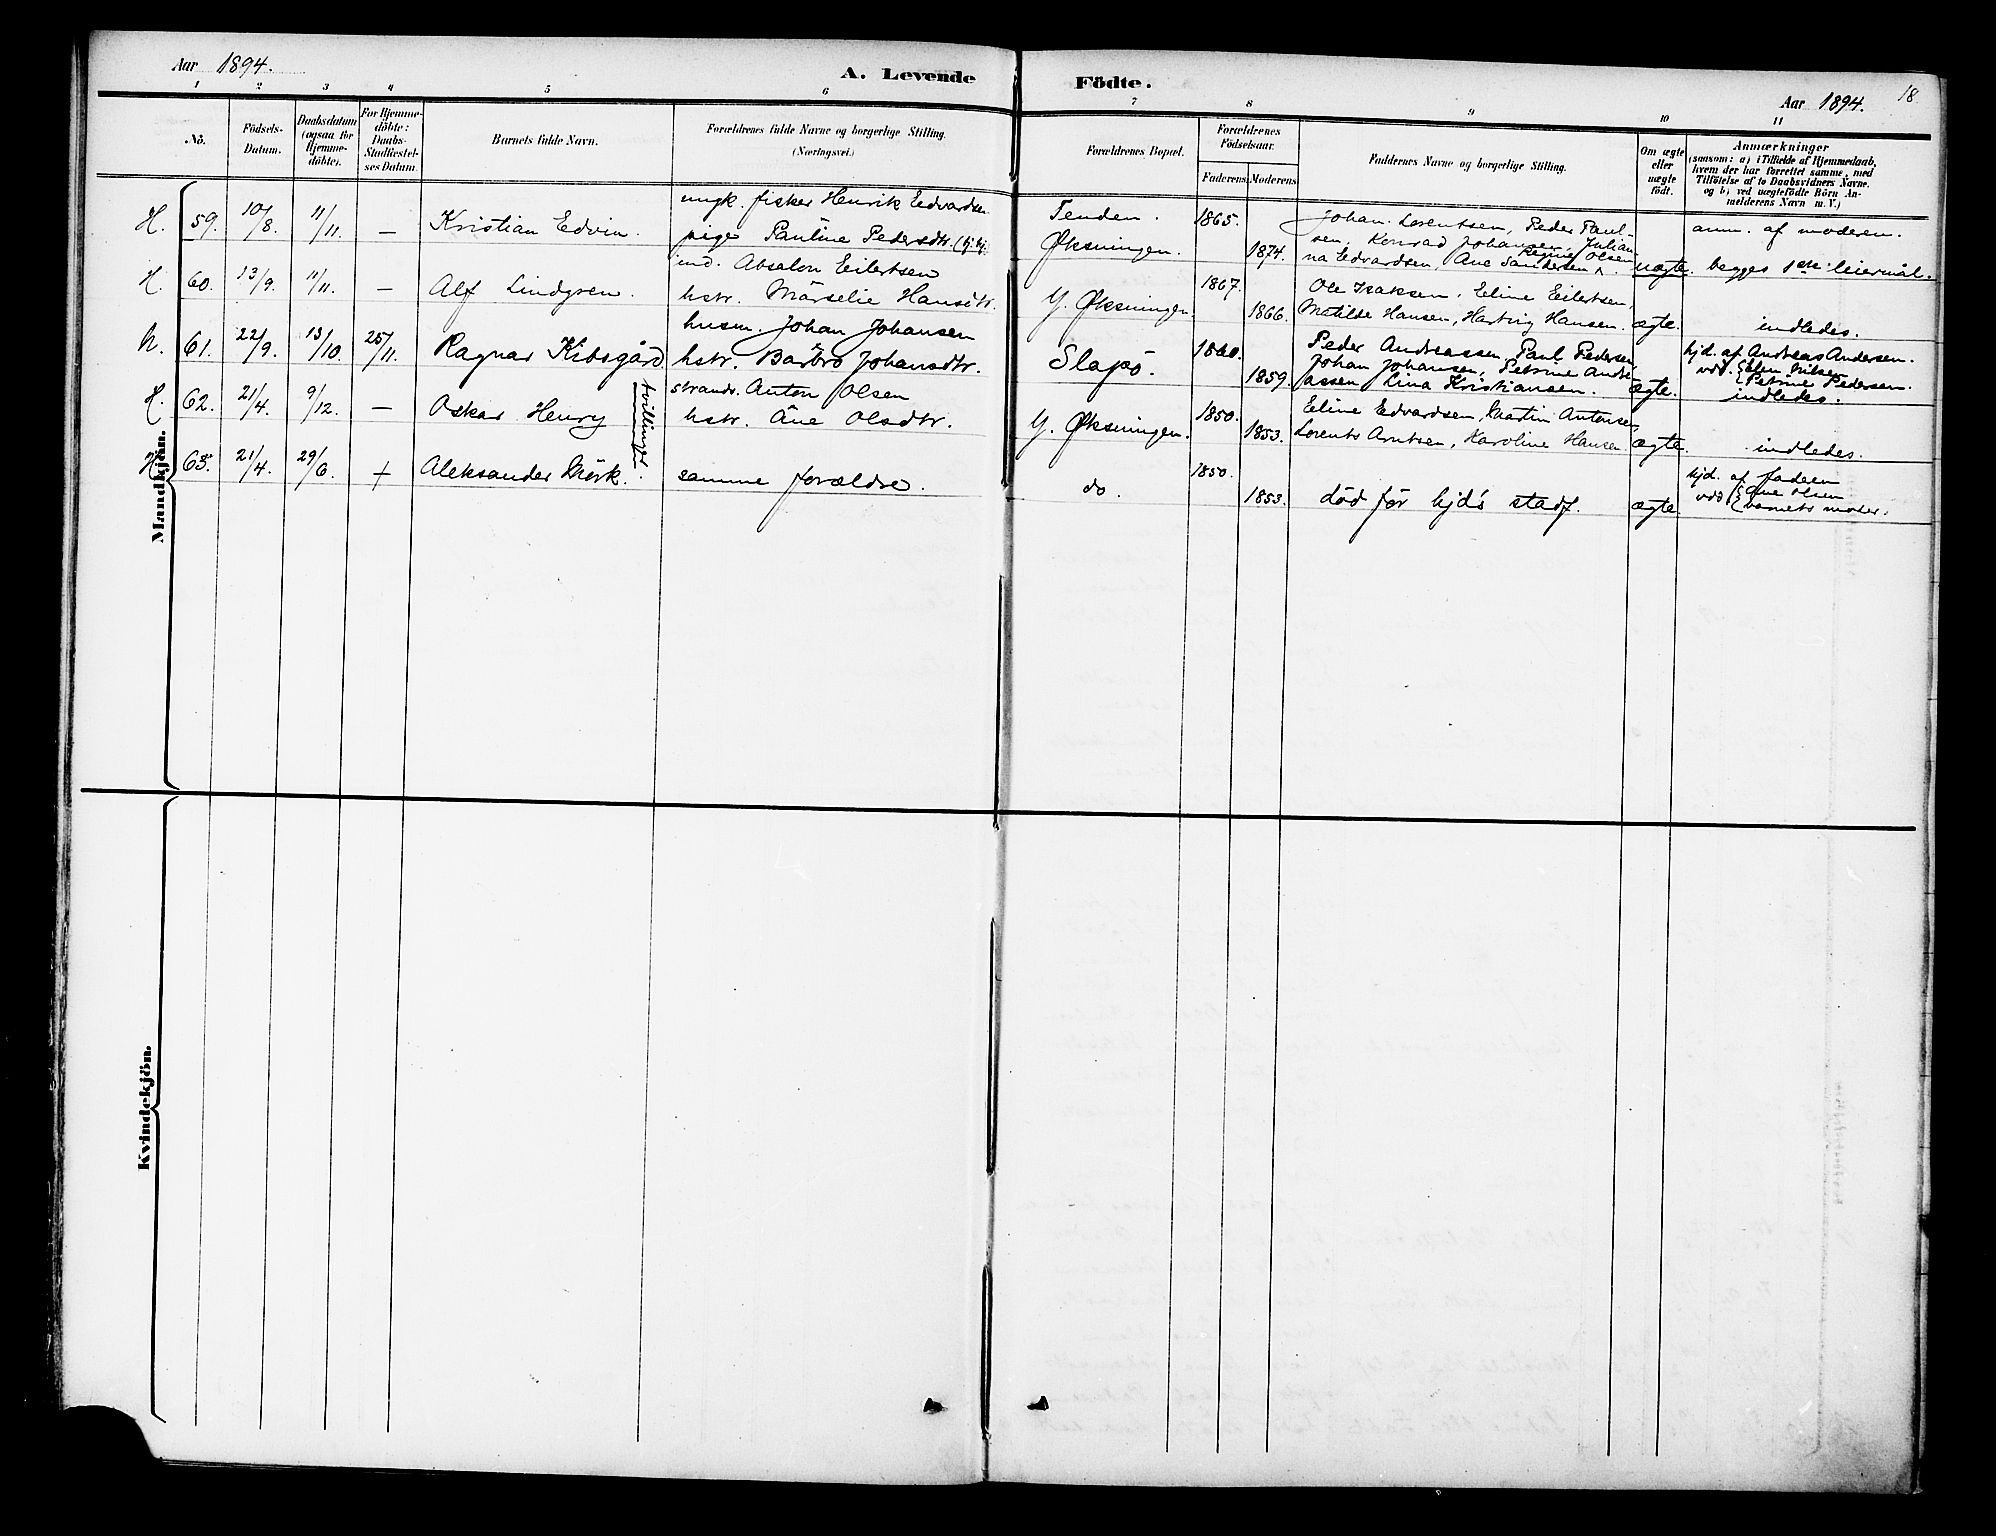 Aar 1894.
A. Levende Födte.
Aar 1894. 18.
1 2 3 4 5 6 7 8 9 10 11
No.
Födsels-Datum.
Daabsdatum (ogsaa for Hjemme-døbte).
For Hjemme-døbte: Daabs-Stadfæstel-ses Datum.
Barnets fulde Navn.
Forældrenes fulde Navne og borgerlige Stilling. (Næringsvei.)
Forældrenes Bopæl.
Forældrenes Födselsaar.
Faderens Moderens
Faddernes Navne og borgerlige Stilling.
Om ægte eller uægte født.
Anmærkninger
(saasom: a) i Tilfælde af Hjemmedaab,
hvem der har forrettet samme, med
Tilføielse af to Daabsvidners Navne.
og b) ved uægtefødte Börn An-
melderens Navn m. V.)
Mandkjön.
H. 59. 10/8. 11/11. — Kristian Edvin.
ungk. fisker Henrik Edvardsen
pige Pauline Pedersdtr.
Tenden.
Øksningen.
1865.
1874.
Johan Lorentsen, Peder Paul-
sen, Konrad Johansen, Julian-
na Edvardsen, Ane Sandersen, Regine Olsen
uægte.
anm. af moderen.
begges 1ste leiermål.
H. 60. 13/9. 11/11. — Alf Lindgren.
ind. Absalon Eilertsen
hstr. Marselie Hansdtr.
Y. Øksningen.
1867.
1866.
Ole Isaksen, Eline Eilertsen,
Matilde Hansen, Hartvig Hansen.
ægte.
indledes.
N. 61. 22/9. 13/10. 25/11. Ragnar Kibsgård
husm. Johan Johansen
hstr. Barbro Johansdtr.
Slapø.
1860.
1859.
Peder Andreassen, Paul Pedersen,
Johan Johansen, Petrine Andre-
assen Lina Kristiansen.
ægte.
hjd. af Andreas Andersen.
vdd. Elen Nilsen
Petrine Pedersen.
indledes.
H. 62. 21/4. 9/12. — Oskar Henry
tvillinger
strands. Anton Olsen
hstr. Ane Olsdtr.
Y. Øksningen.
1850.
1853.
Eline Edvardsen, Martin Antonsen,
Lorents Arntsen, Karoline Hansen
ægte.
indledes.
H. 63. 21/4. 29/6. + Aleksander Mörk.
samme forældre.
do.
1850.
1853.
död för hjd's stadf.
ægte.
hjd. af faderen
vdd Ane Olsen
barnets moder.
Kvindekjön.